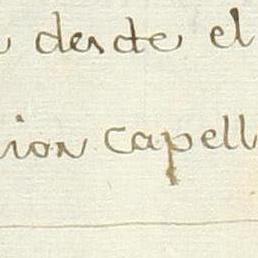 desde el
ion Capell